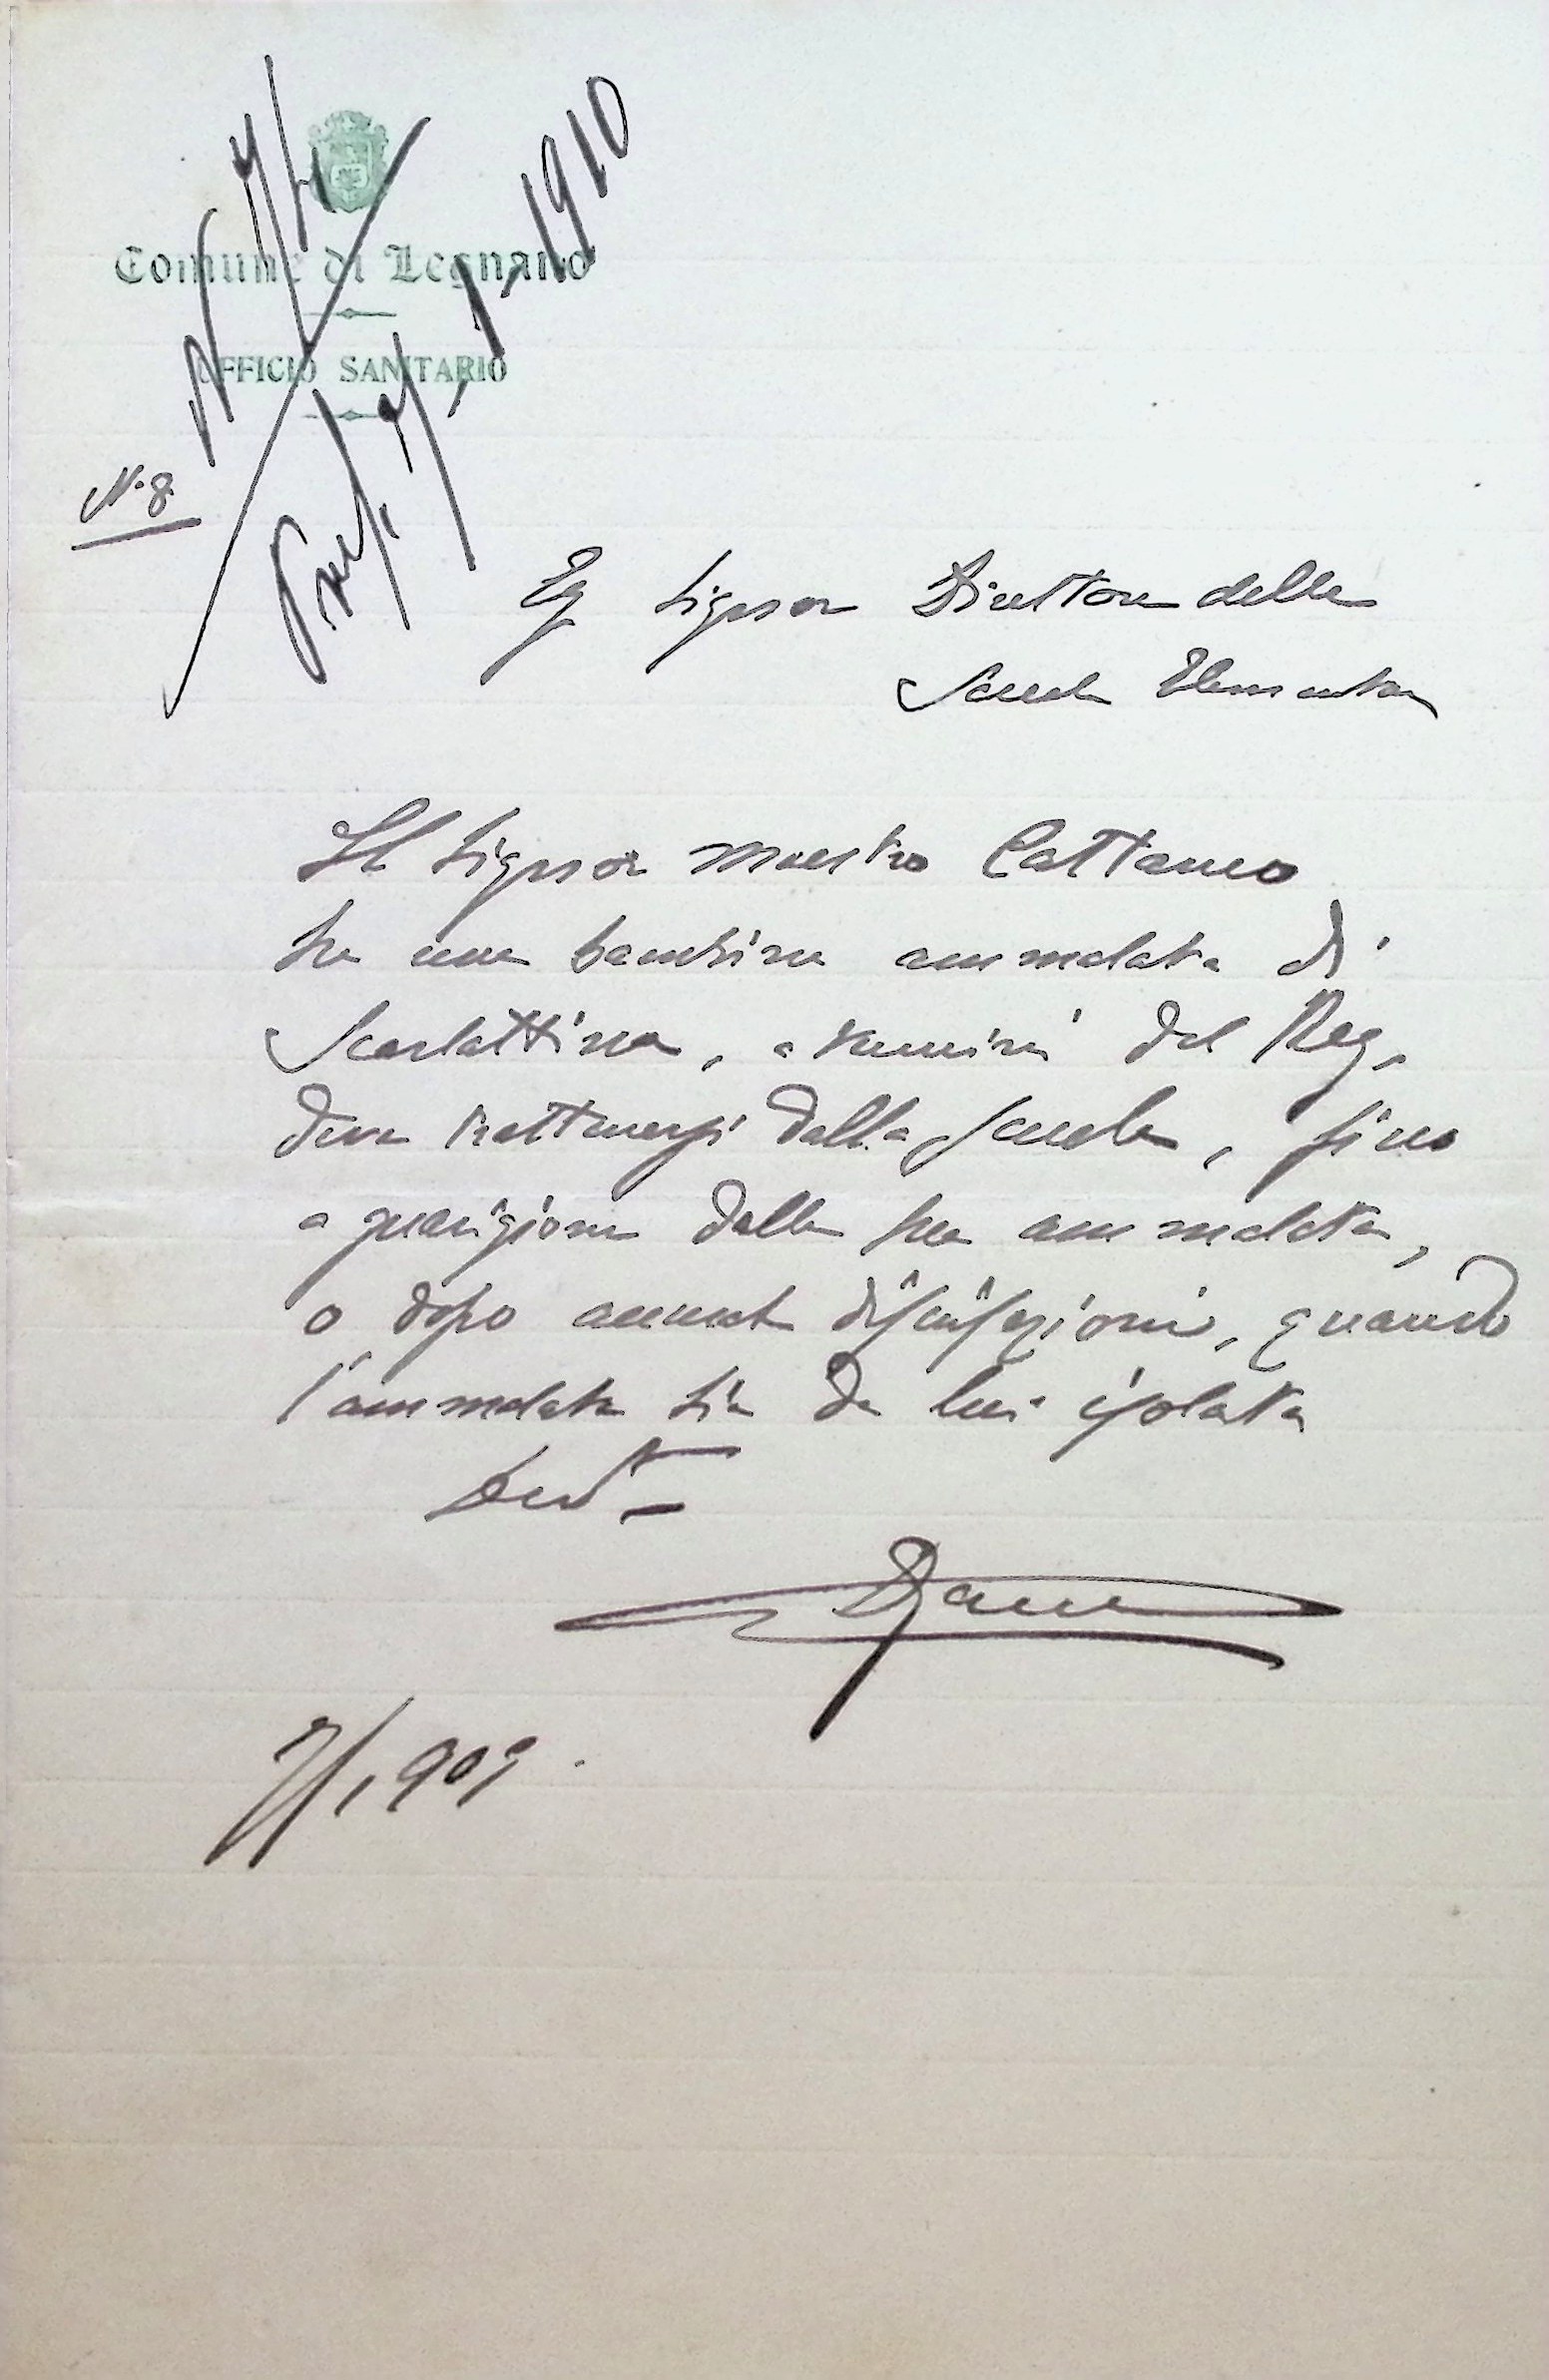 Comune di Legnano
UFFICIO SANITARIO
N. 8
9 1 1910
Eg Signor Direttore delle
Scuole Elementari
Il Signor maestro Cattaneo
ha una bambina ammalata di
Scarlattina, a termini del Reg.
deve trattenersi dalla scuola, fino
a guarigione della sua ammalata,
o dopo accurate disinfezioni, quando
l'ammalata sia da lui isolata
7/1 909.